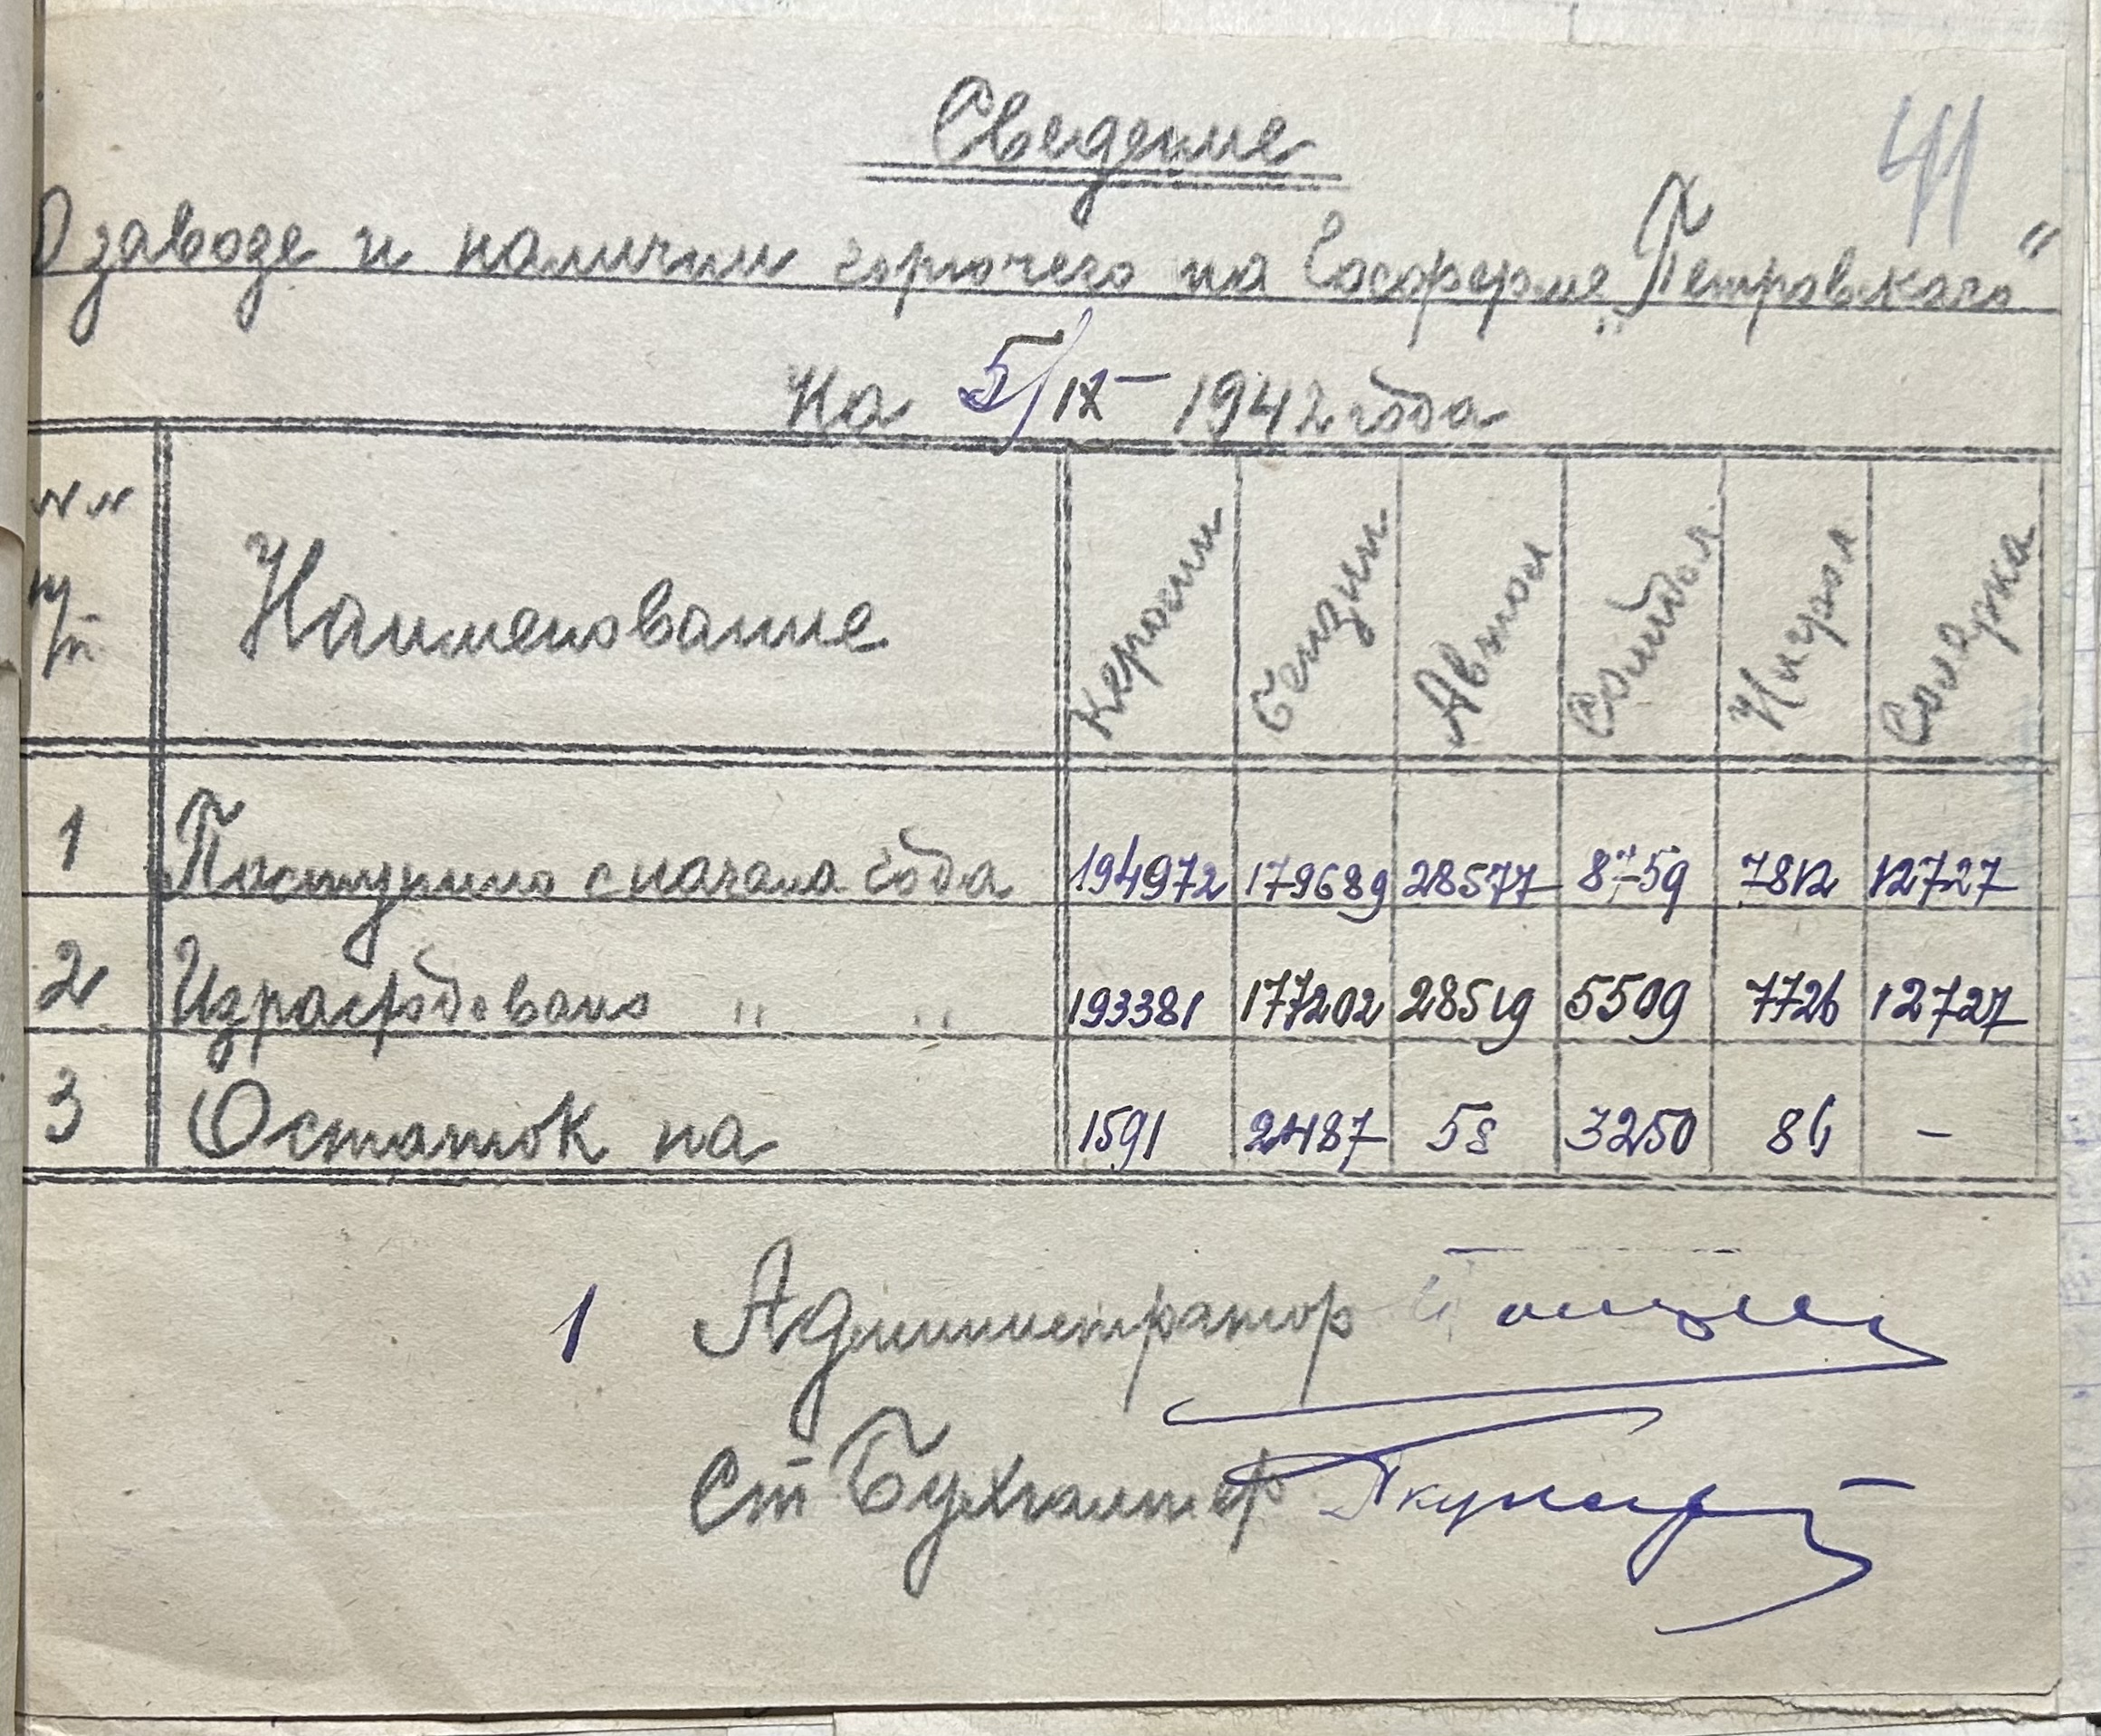 41
Сведение
О завозе и наличии горючего на Госферме „Петровского“
На 5/IX – 1942 года
№ №
п/п
Наименование
Керосин
Бензин
Автол
Солидол
Нигрол
Солярка
1 Поступило с начала года 194972 179689 28577 8759 7812 12727
2 Израсходовано " " 193381 177202 28519 5509 7726 12727
3 Остаток на 1591 2487 58 3250 86 –
1 Администратор
Ст Бухгалтер